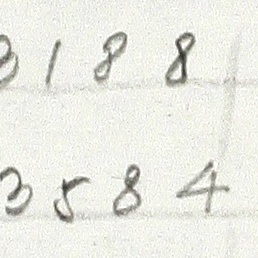 3188
3584